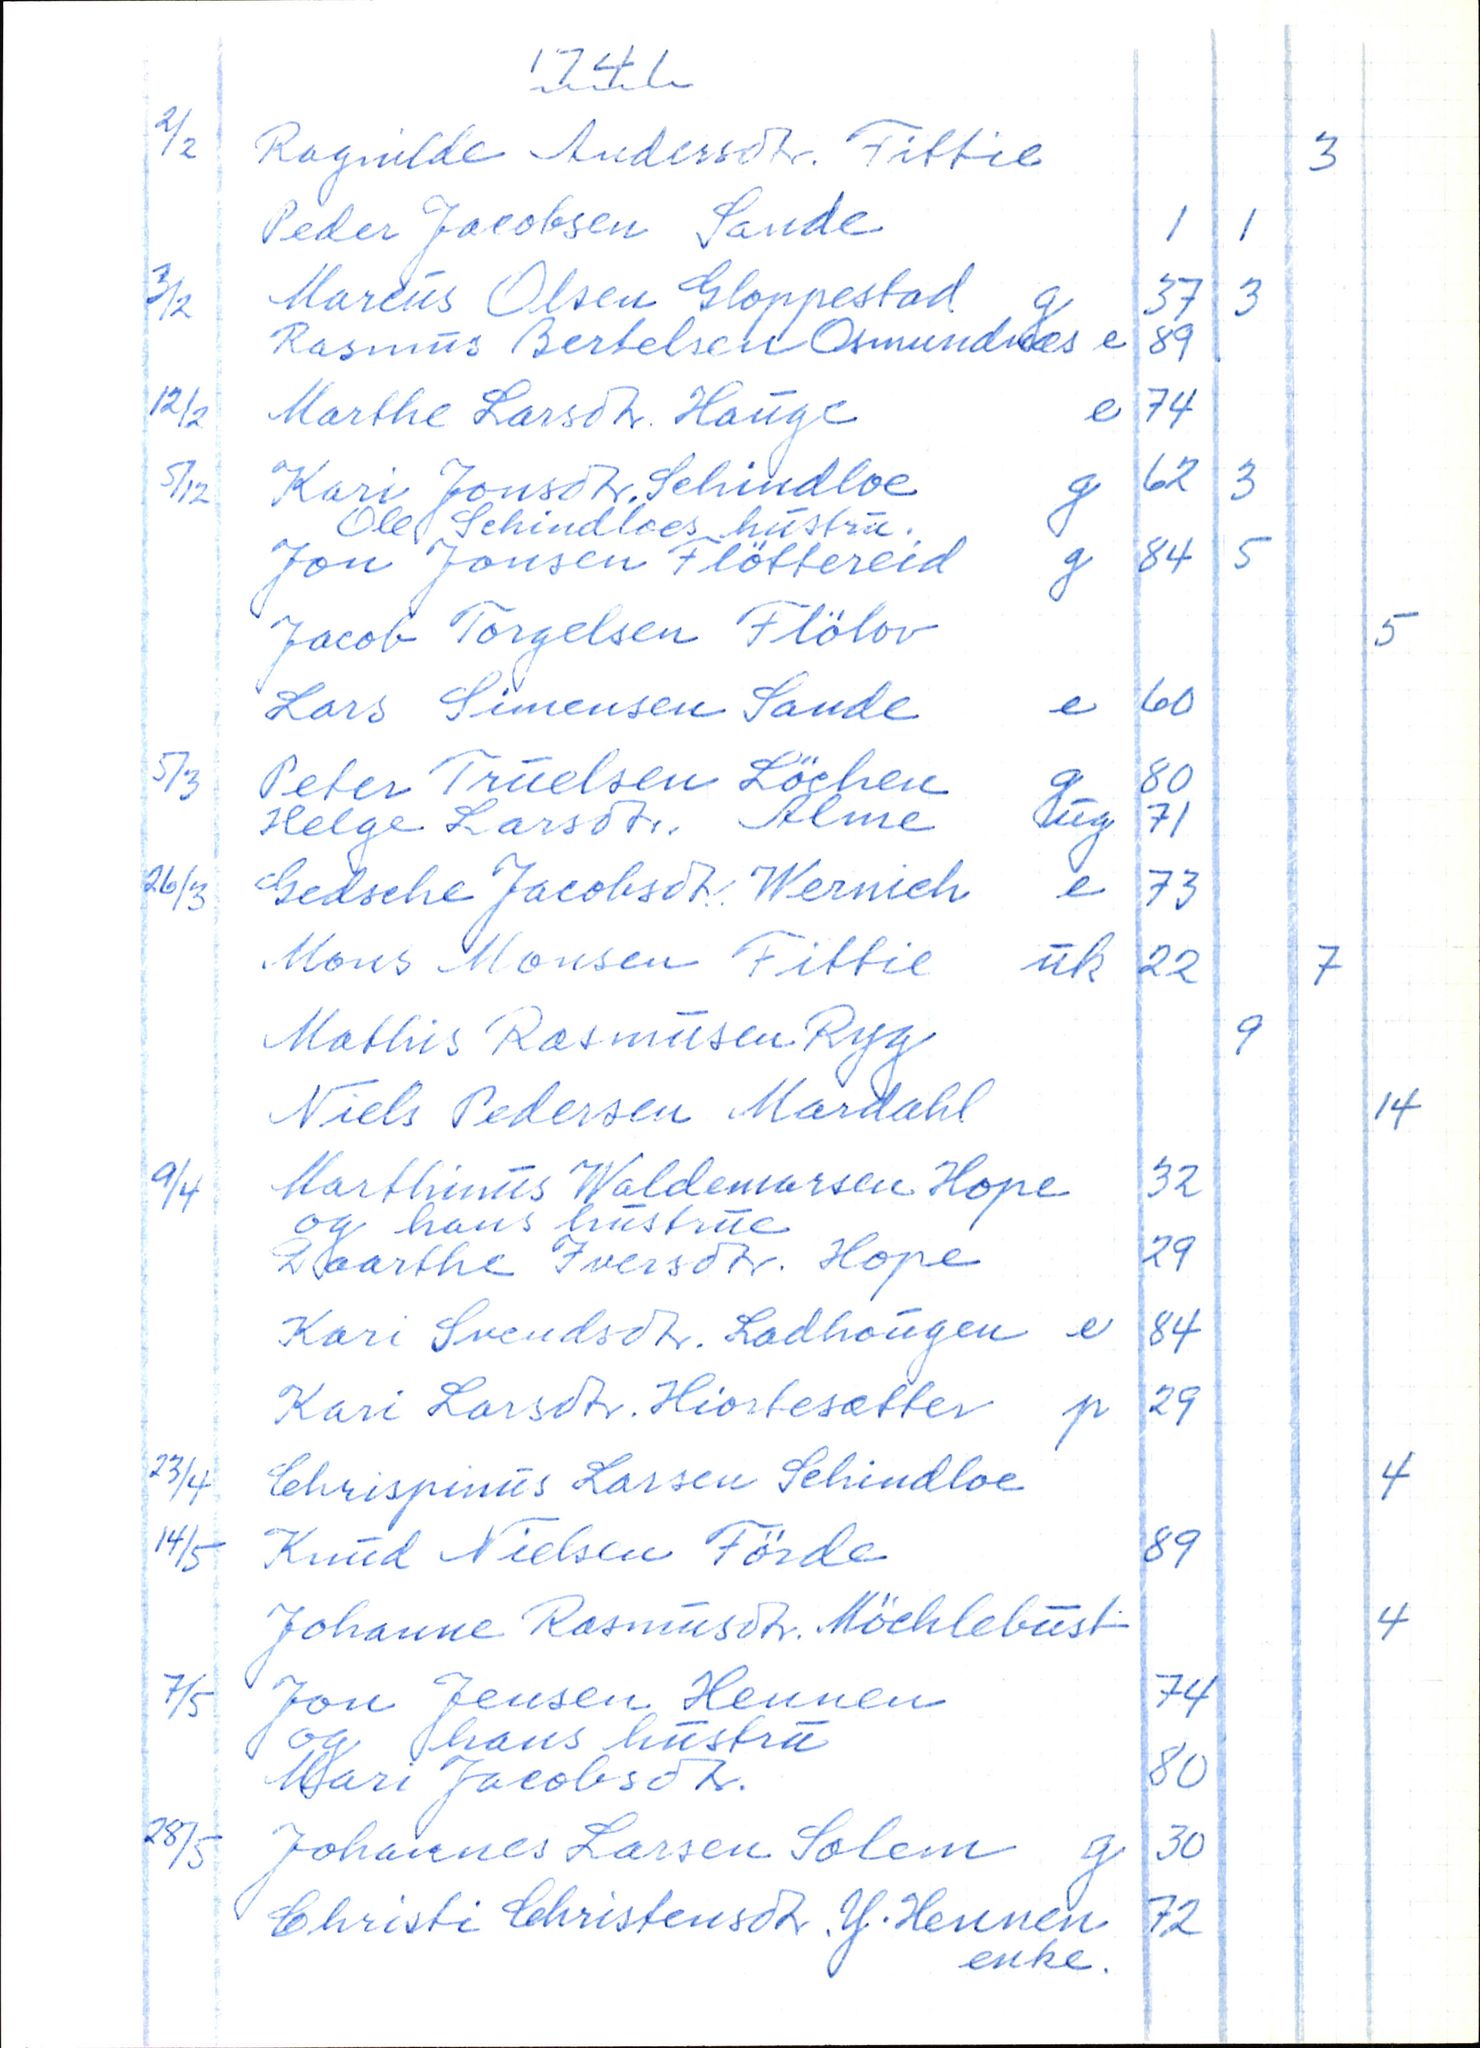 1741
2/2 Ragnilde Andersdtr. Fittie 3
Peder Jacobsen Sande 1 1
3/2 Marcus Olsen Gloppestad g 37 3
Rasmus Bertelsen Osmundnæs e 89
12/2 Marthe Larsdtr. Hauge e 74
5/12 Kari Jonsdtr. Schindloe g 62 3
Ole Schindloes hustru.
Jon Jonsen Flöttereid g 84 5
Jacob Torgelsen Flölov 5
Lars Simensen Sande e 60
5/3 Peter Truelsen Löchen g 80
Helge Larsdtr. Alme ug 71
26/3 Gedsche Jacobsdtr. Wernich e 73
Mons Monsen Fittie uk 22 7
Mathis Rasmusen Ryg 9
Niels Pedersen Mardahl 14
9/4 Marthinus Waldemarsen Hope 32
og hans hustrue
Daarthe Iversdtr. Hope 29
Kari Svendsdtr. Ladhougen e 84
Kari Larsdtr. Hiortesætter p 29
23/4 Chrispinus Larsen Schindloe 4
14/5 Knud Nielsen Förde 89
Johanne Rasmusdtr. Möchlebust 4
7/5 Jon Jensen Hennen 74
og hans hustru
Mari Jacobsdtr. 80
28/5 Johannes Larsen Solem g 30
Christi Christensdtr. Y. Hennen 72
enke.